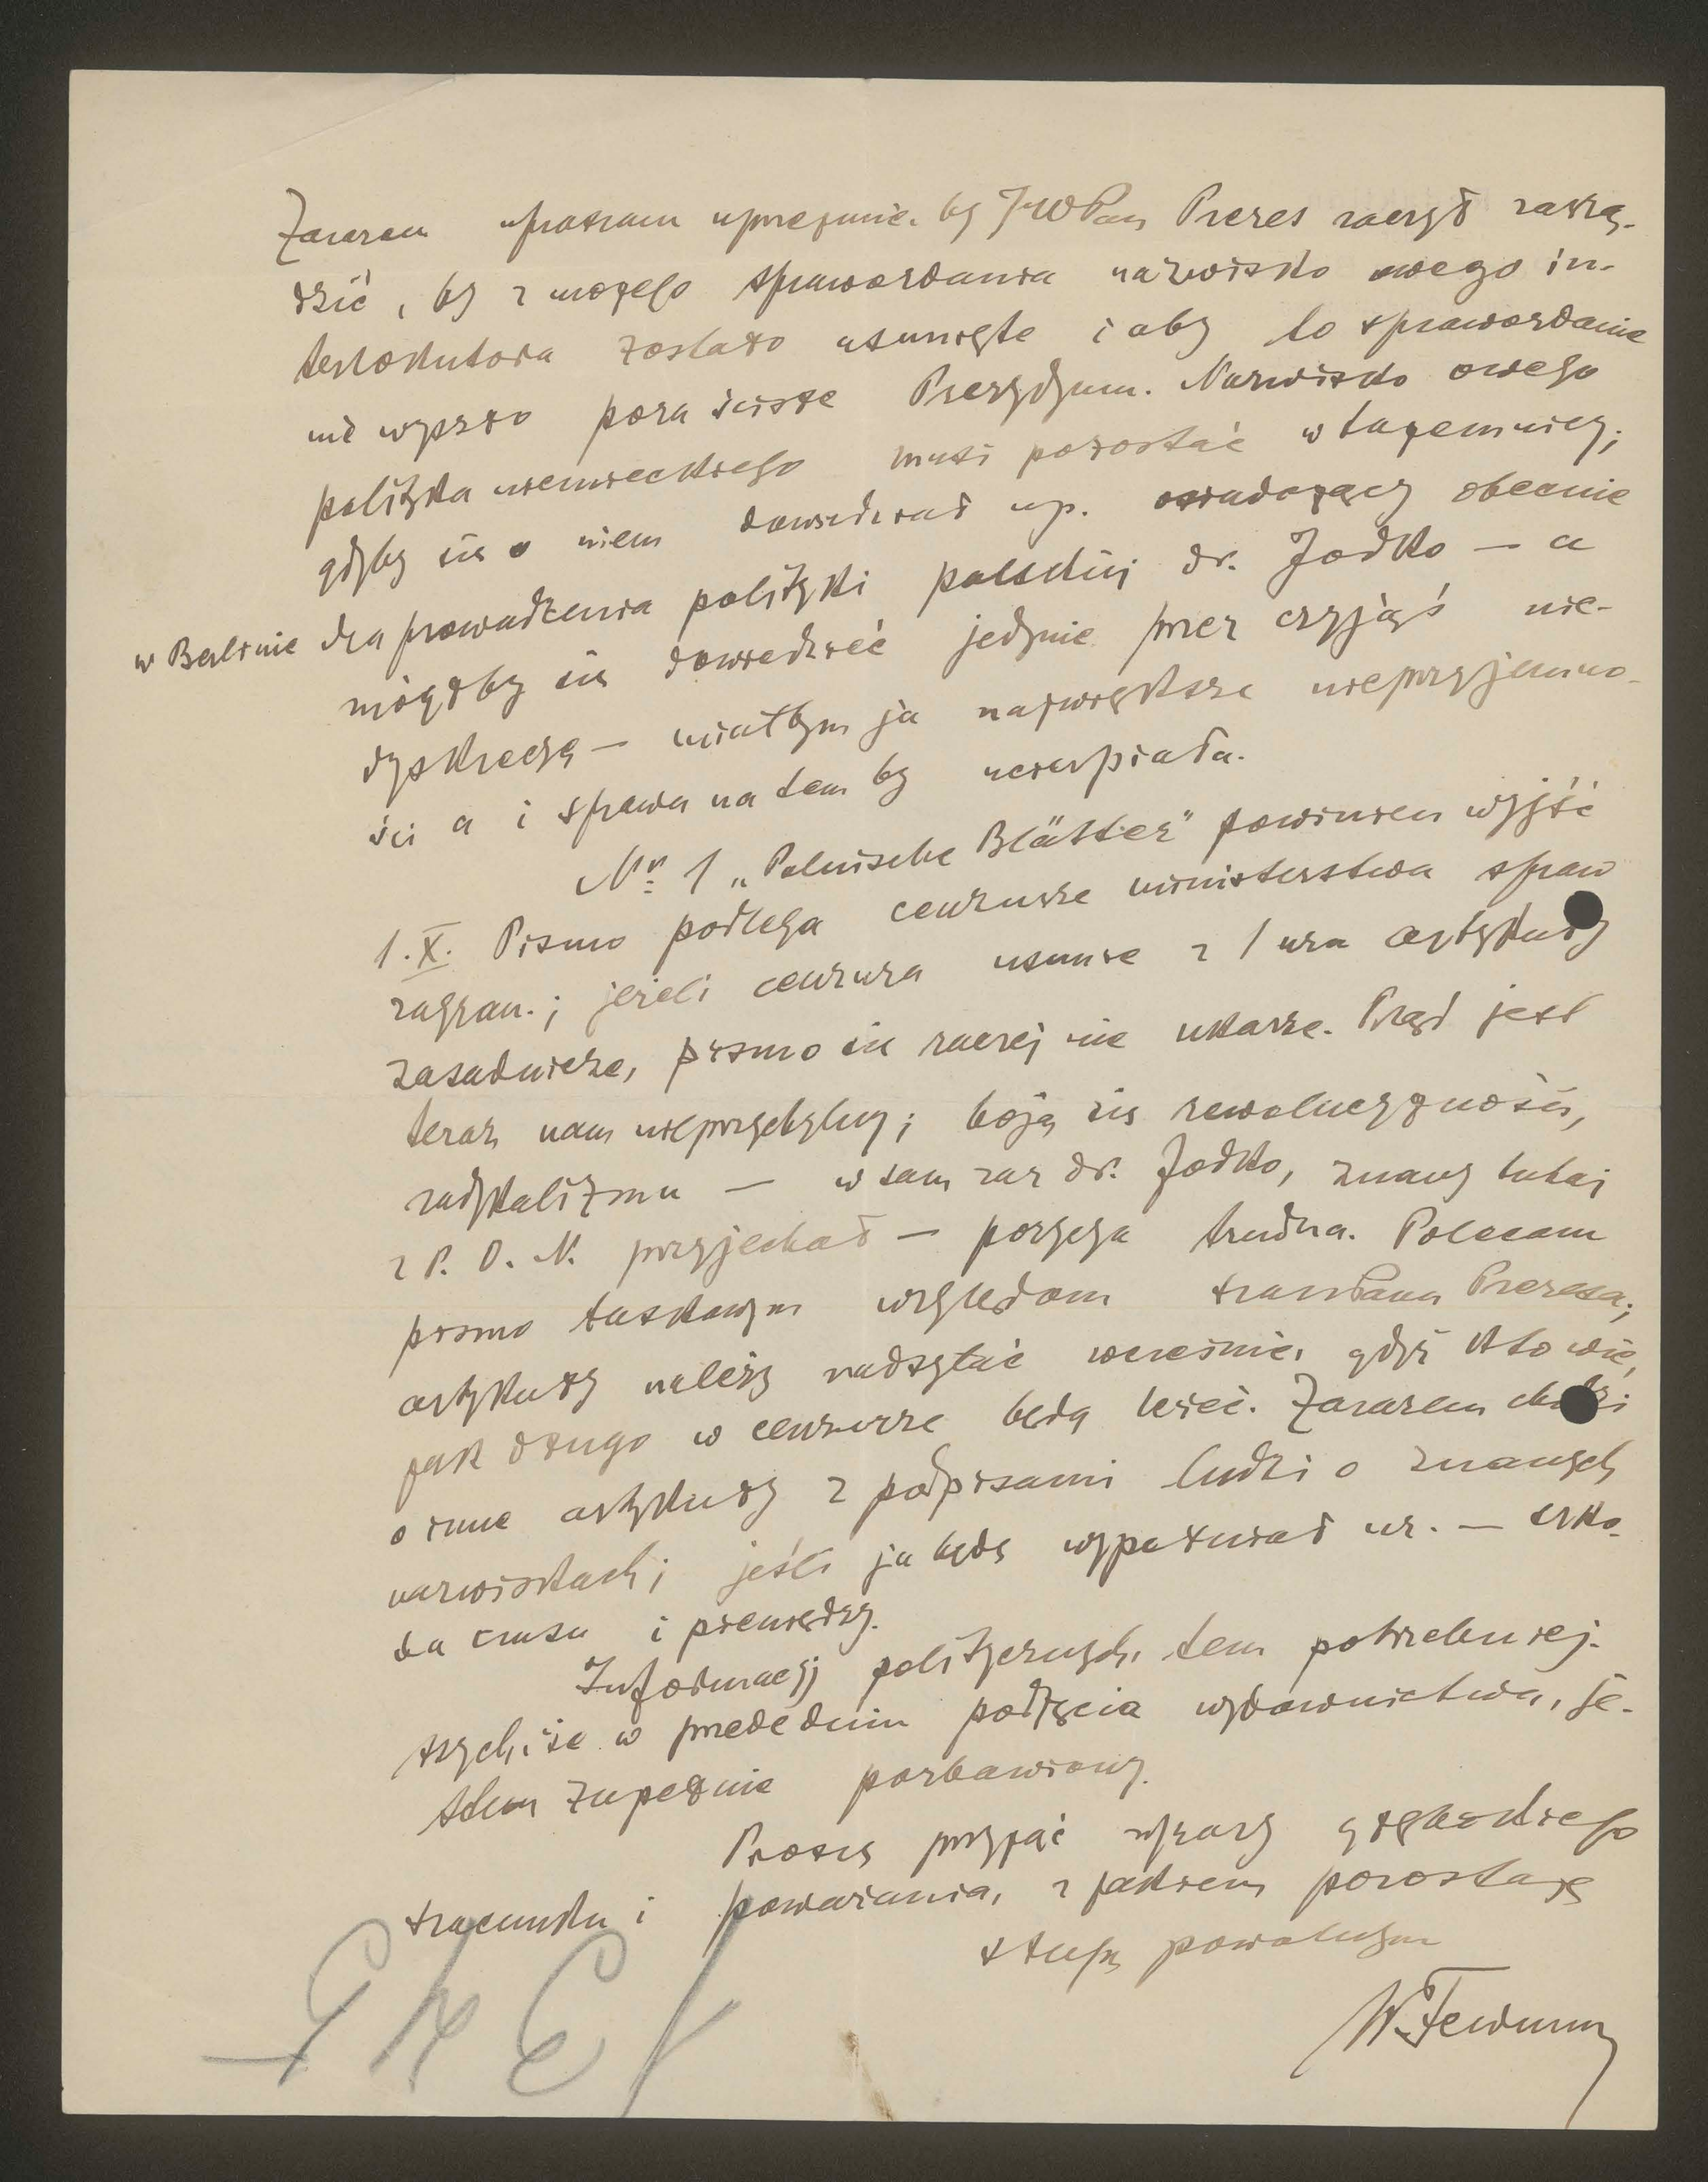 Zarazem upraszam uprzejmie, by JWPan Prezes raczył zarzą-
dzić, by z mojego sprawozdania nazwisko owego in-
terlokutora zostało usunięte i aby to sprawozdanie
nie wyszło poza ścisłe Prezydyum. Nazwisko owego
polityka niemieckiego musi pozostać w tajemnicy;
gdyby się o niem dowiedział np. osiadający obecnie
w Berlinie dla prowadzenia polityki polskiej dr. Jodko — a
mógłby się dowiedzieć jedynie przez czyjąś nie-
dyskrecyą — miałbym ja największe nieprzyjemno-
ści a i sprawa na tem by ucierpiała.
Nr. 1 „Polnische Blätter" powinien wyjść
1. X. Pismo podlega cenzurze ministerstwa spraw
zagran.; jeżeli cenzura usunie z 1 nra artykuły
zasadnicze, pismo się raczej nie ukaże. Prąd jest
teraz nam nieprzychylny; boją się rewolucyjności,
radykalizmu — w sam raz dr. Jodko, znany tutaj
z P. O. N. przyjechał — pozycya trudna. Polecam
pismo łaskawym względom szan. Pana Prezesa;
artykuły należy nadsyłać wcześnie, gdyż kto wie,
jak długo w cenzurze będą leżeć. Zarazem chodzi
o inne artykuły z podpisami ludzi o znanych
nazwiskach; jeśli ja będę wypełniał nr. — szko-
da czasu i pieniędzy.
Informacyj politycznych, tem potrzebniej-
szych, że w przededniu podjęcia wydawnictwa, je-
stem zupełnie pozbawiony.
Proszę przyjąć wyrazy głębokiego
szacunku i poważania, z jakiem pozostaję
sługą powolnym
W. Feldman